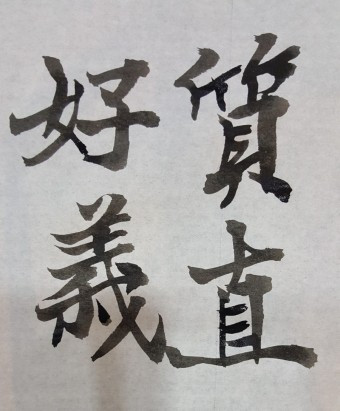 質直
好義